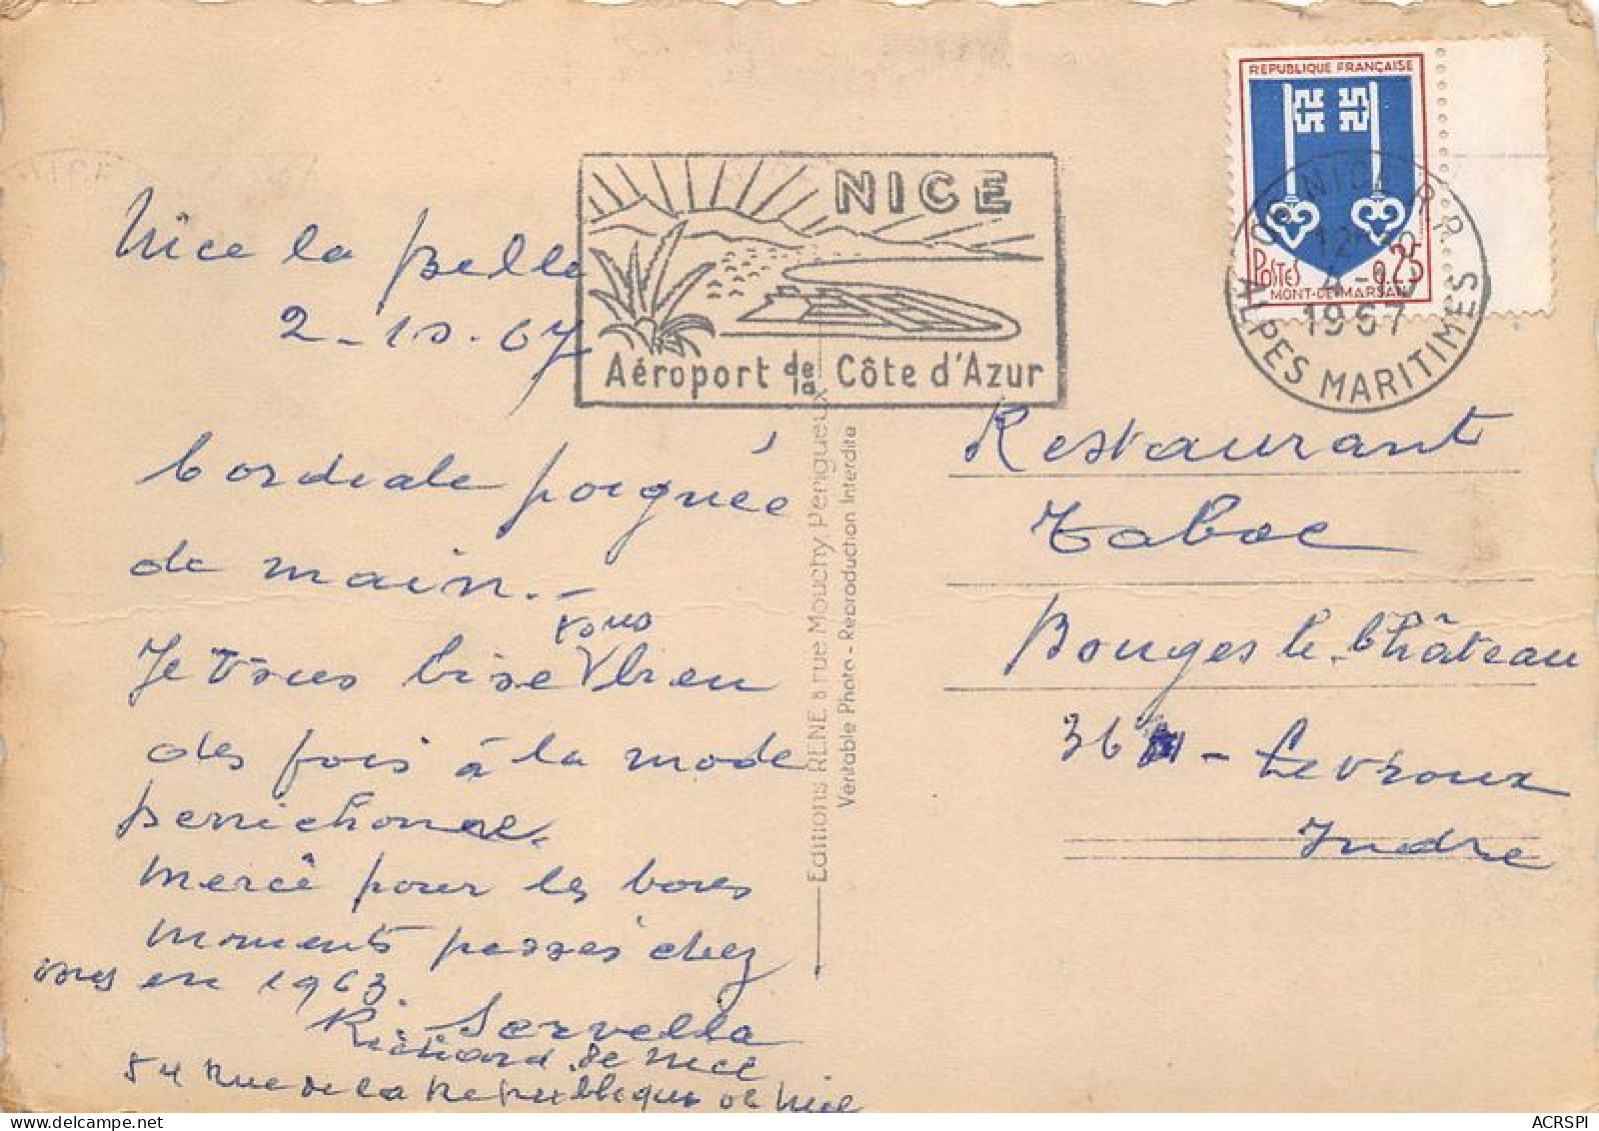 Nice la belle
2-10.67
Cordiale poignée
de main.-
tous
Je vous bise V bien
des fois à la mode
berrichonne.
Mercê pour les bons
moments passés chez
vous en 1963.
R. Servella
Richard de Nice
54 Rue de la République de Nice
NICE
Aéroport de la Côte d'Azur
Editions RENE, 8 rue Mouchy, Périgueux
Véritable Photo - Reproduction Interdite
REPUBLIQUE FRANÇAISE
POSTES 0,25
MONT-DE-MARSAN
NICE R.P.
1967
ALPES MARITIMES
Restaurant
Tabac
Bouges le-Château
36 - Levroux
Indre
ACRSPI